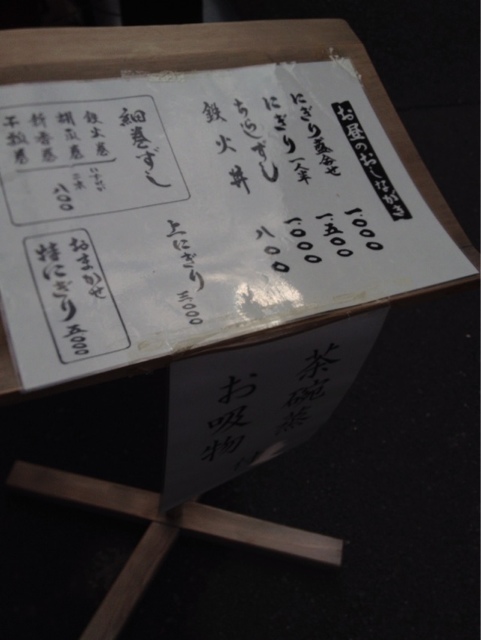 お昼のおしながき
にぎり盛合せ 一.〇〇〇
にぎり一人半 一.五〇〇
ちらしずし 一.〇〇〇
鉄火丼 八〇〇
上にぎり 三〇〇〇
細巻ずし
鉄火巻
胡瓜巻
新香巻
干瓢巻
八〇〇
おまかせ
特にぎり 五〇〇〇
茶碗蒸
お吸物